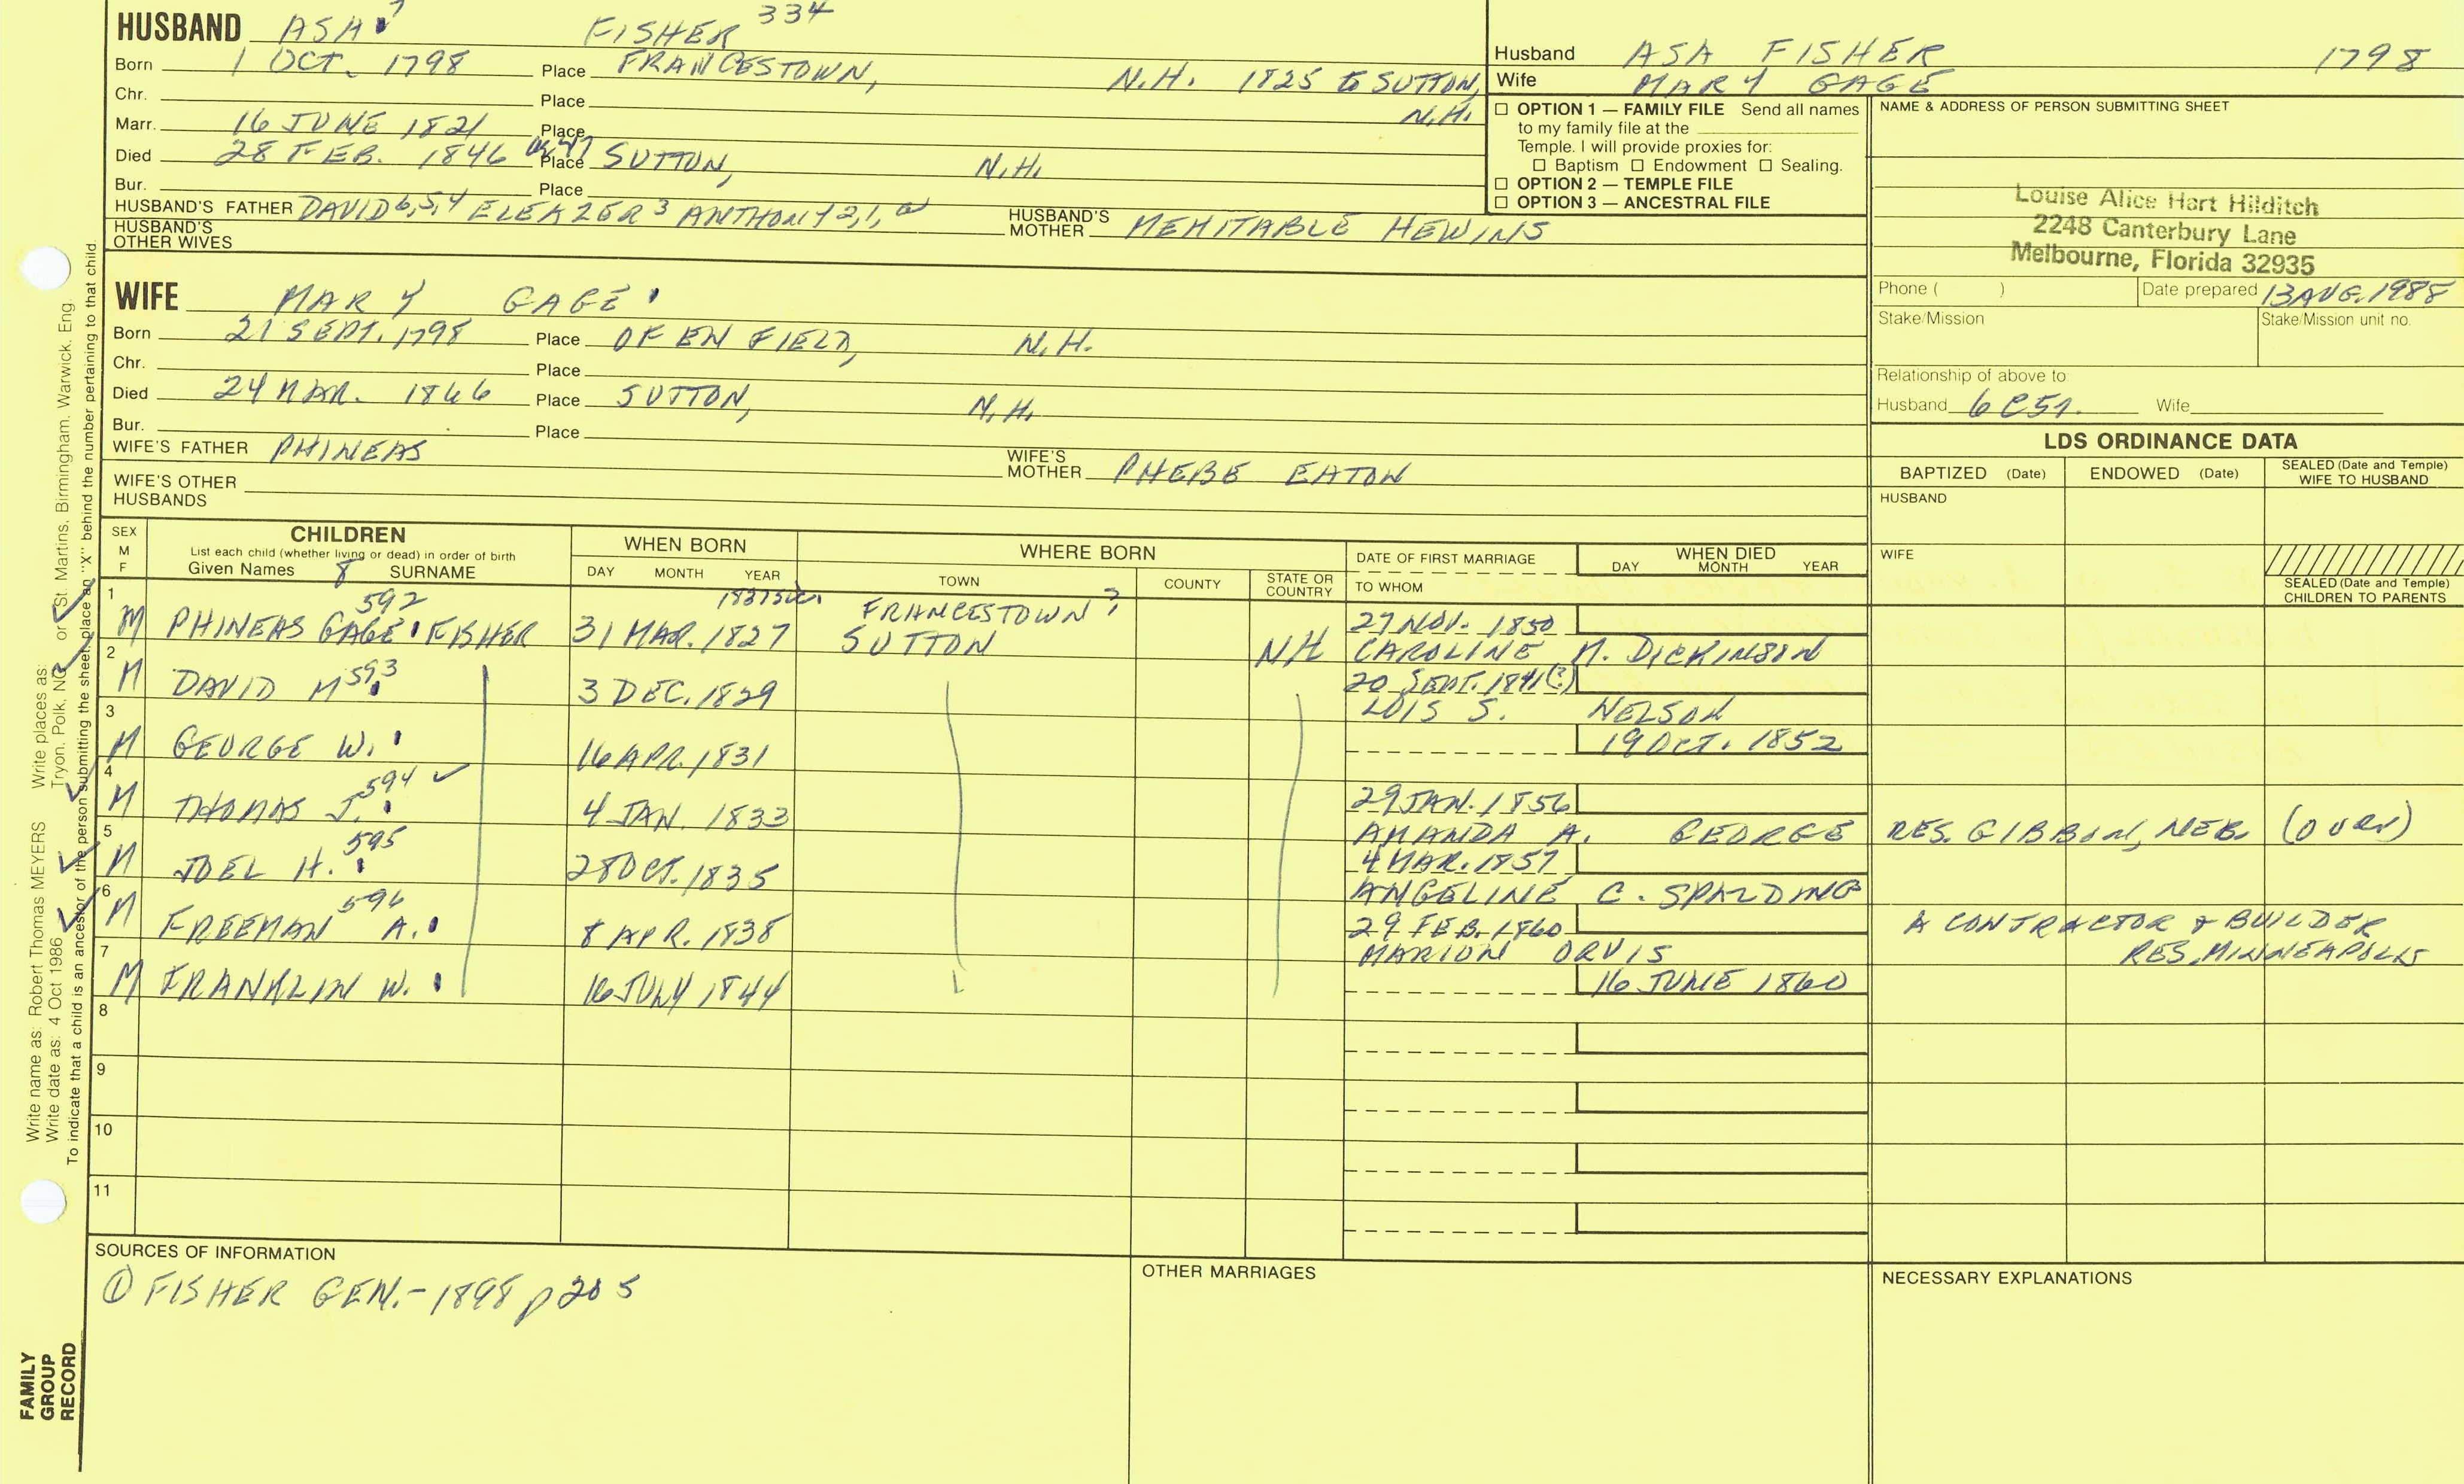 HUSBAND ASA 7 FISHER 334
Born 1 OCT. 1798 Place FRANCESTOWN, N.H. 1825 to SUTTON, N.H.
Chr. Place
Marr. 16 JUNE 1821 Place
Died 28 FEB. 1846 or 47 Place SUTTON, N.H.
Bur. Place
HUSBAND'S FATHER DAVID 6,5,4 ELEAZER 3 ANTHONY 2,1, HUSBAND'S MOTHER MEHITABLE HEWINS
HUSBAND'S OTHER WIVES
WIFE MARY GAGE
Born 21 SEPT. 1798 Place OF ENFIELD, N.H.
Chr. Place
Died 24 MAR. 1866 Place SUTTON, N.H.
Bur. Place
WIFE'S FATHER PHINEAS WIFE'S MOTHER PHEBE EATON
WIFE'S OTHER HUSBANDS
Husband ASA FISHER 1798
Wife MARY GAGE
☐ OPTION 1 — FAMILY FILE Send all names
to my family file at the
Temple. I will provide proxies for:
☐ Baptism ☐ Endowment ☐ Sealing.
☐ OPTION 2 — TEMPLE FILE
☐ OPTION 3 — ANCESTRAL FILE
NAME & ADDRESS OF PERSON SUBMITTING SHEET
Louise Alice Hart Hilditch
2248 Canterbury Lane
Melbourne, Florida 32935
Phone ( ) Date prepared 13 AUG. 1988
Stake/Mission Stake/Mission unit no.
Relationship of above to:
Husband 6C5R. Wife
LDS ORDINANCE DATA
BAPTIZED (Date) ENDOWED (Date) SEALED (Date and Temple) WIFE TO HUSBAND
HUSBAND
WIFE
SEALED (Date and Temple) CHILDREN TO PARENTS
SEX M F CHILDREN WHEN BORN WHERE BORN DATE OF FIRST MARRIAGE WHEN DIED
List each child (whether living or dead) in order of birth
Given Names 8 SURNAME DAY MONTH YEAR TOWN COUNTY STATE OR COUNTRY TO WHOM DAY MONTH YEAR
1 592 1837 sic. FRANCESTOWN? 27 NOV. 1850
M PHINEAS GAGE FISHER 31 MAR. 1827 SUTTON NH CAROLINE M. DICKINSON
2 M DAVID M 593 3 DEC. 1829 20 SEPT. 1841(?)
LOIS S. NELSON
3 M GEORGE W. 16 APR. 1831 19 OCT. 1852
4 M THOMAS J. 594 ✓ 4 JAN. 1833 29 JAN. 1856
AMANDA A. GEORGE RES. GIBBON, NEB. (OVER)
5 M JOEL H. 595 28 OCT. 1835 4 MAR. 1857
ANGELINE C. SPALDING
6 M FREEMAN A. 596 8 APR. 1838 29 FEB. 1860
MARION ORVIS A CONTRACTOR & BUILDER
RES. MINNEAPOLIS
7 M FRANKLIN W. 16 JULY 1844 16 JUNE 1860
8
9
10
11
SOURCES OF INFORMATION
① FISHER GEN.- 1898 p 205
OTHER MARRIAGES
NECESSARY EXPLANATIONS
Write name as: Robert Thomas MEYERS Write places as: Tryon, Polk, NC or St. Martins, Birmingham, Warwick, Eng.
Write date as: 4 Oct 1986
To indicate that a child is an ancestor of the person submitting the sheet, place an "X" behind the number pertaining to that child.
FAMILY
GROUP
RECORD